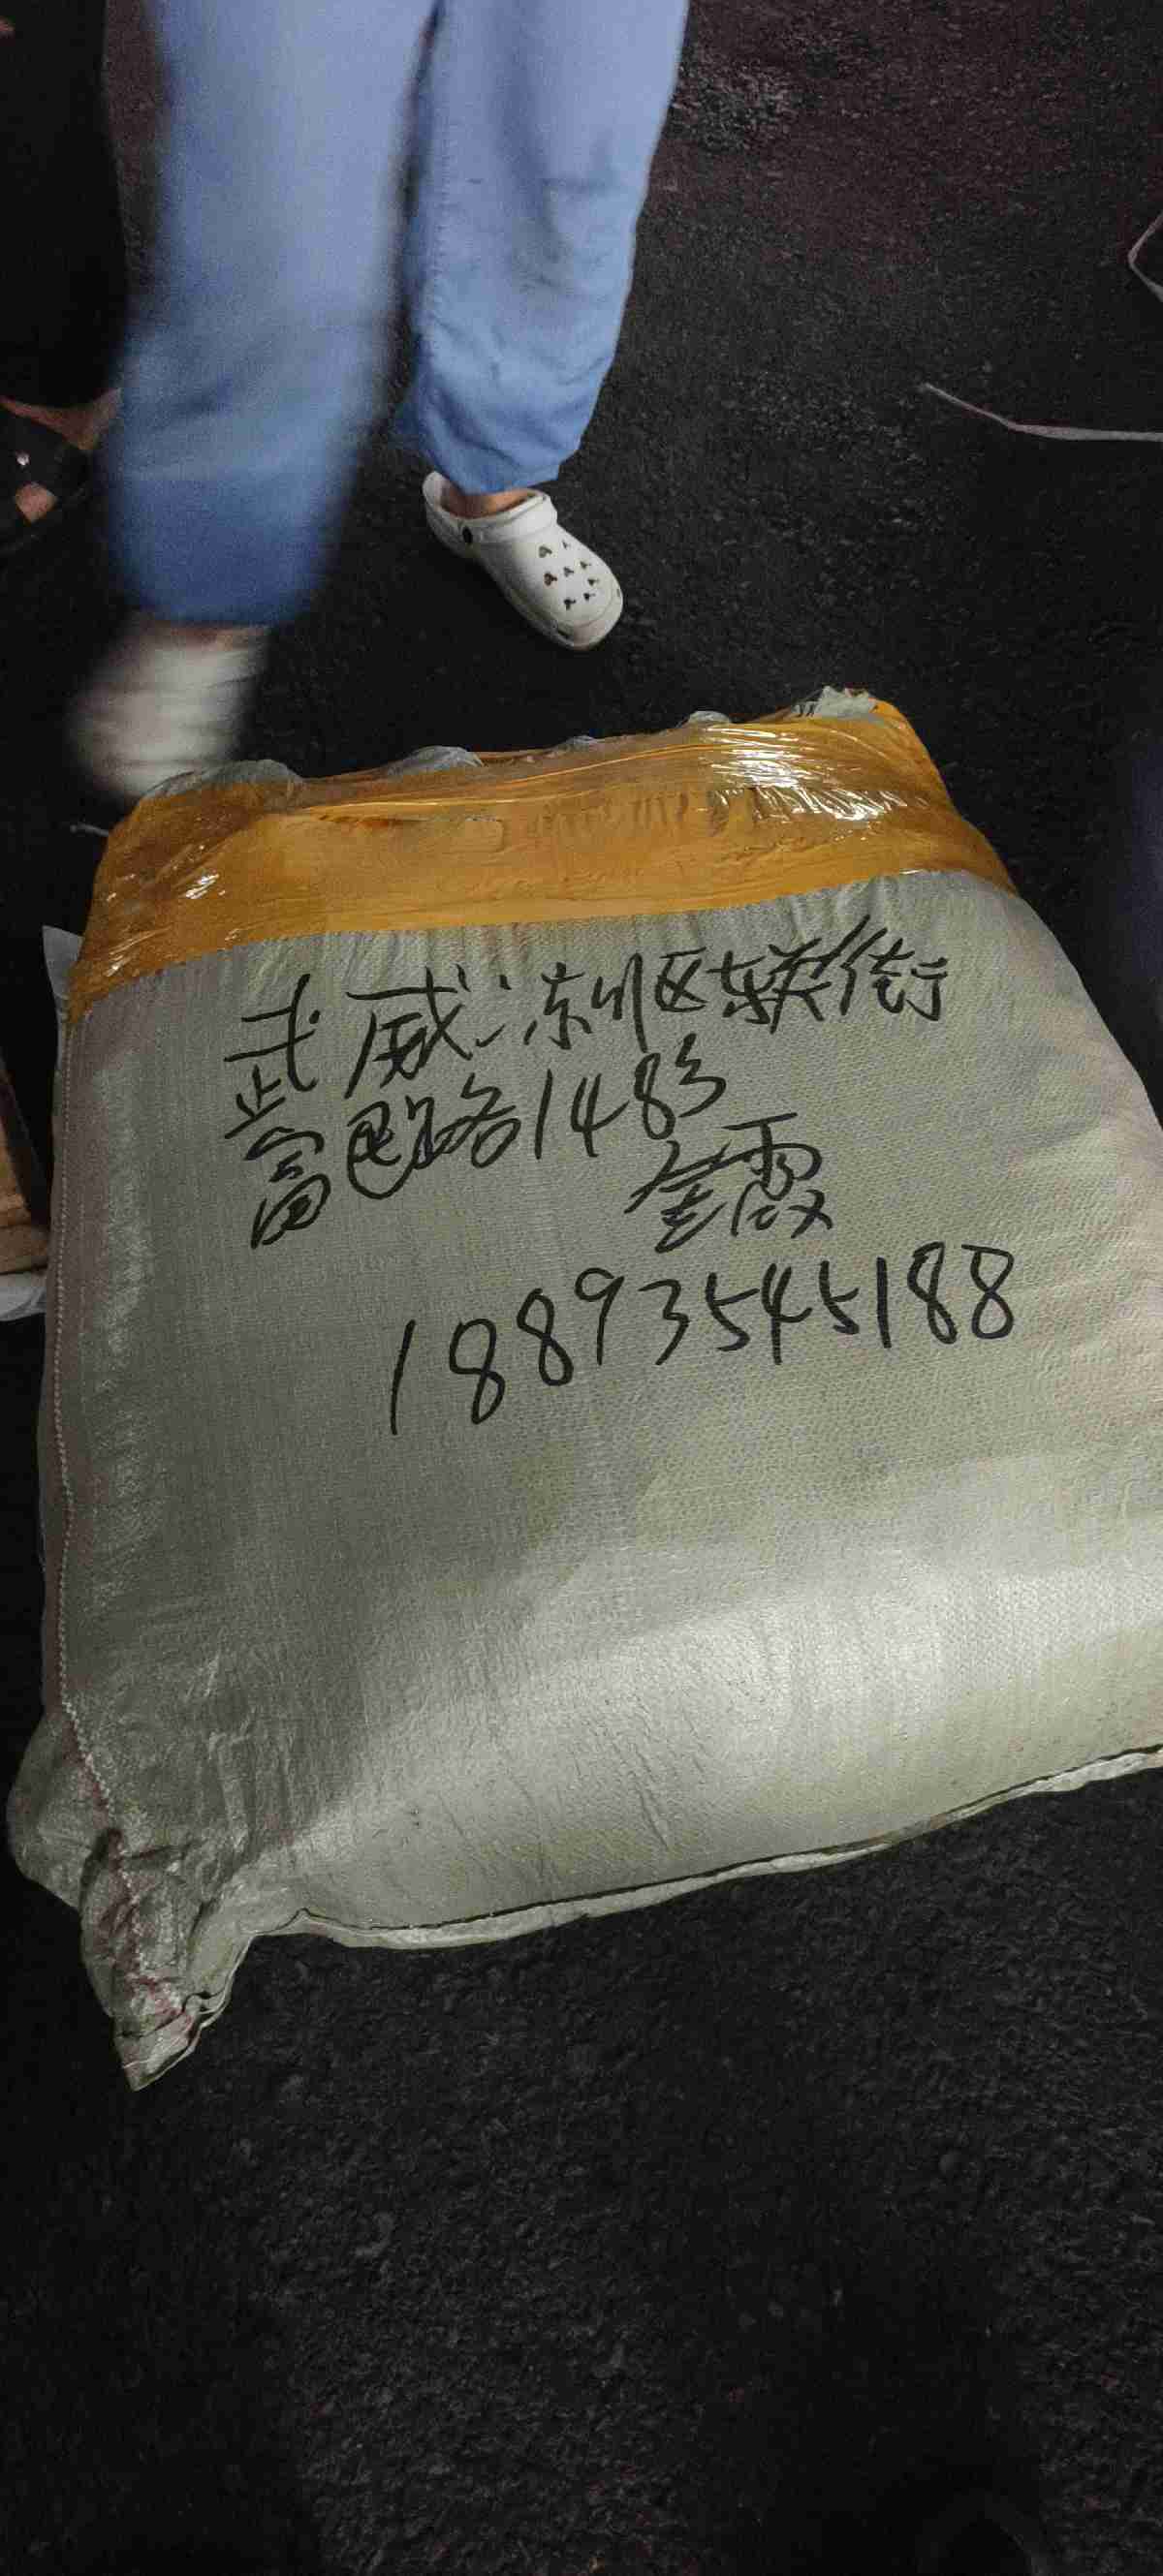 武威:凉州区东关街
富民路148号
金霞
18893545188